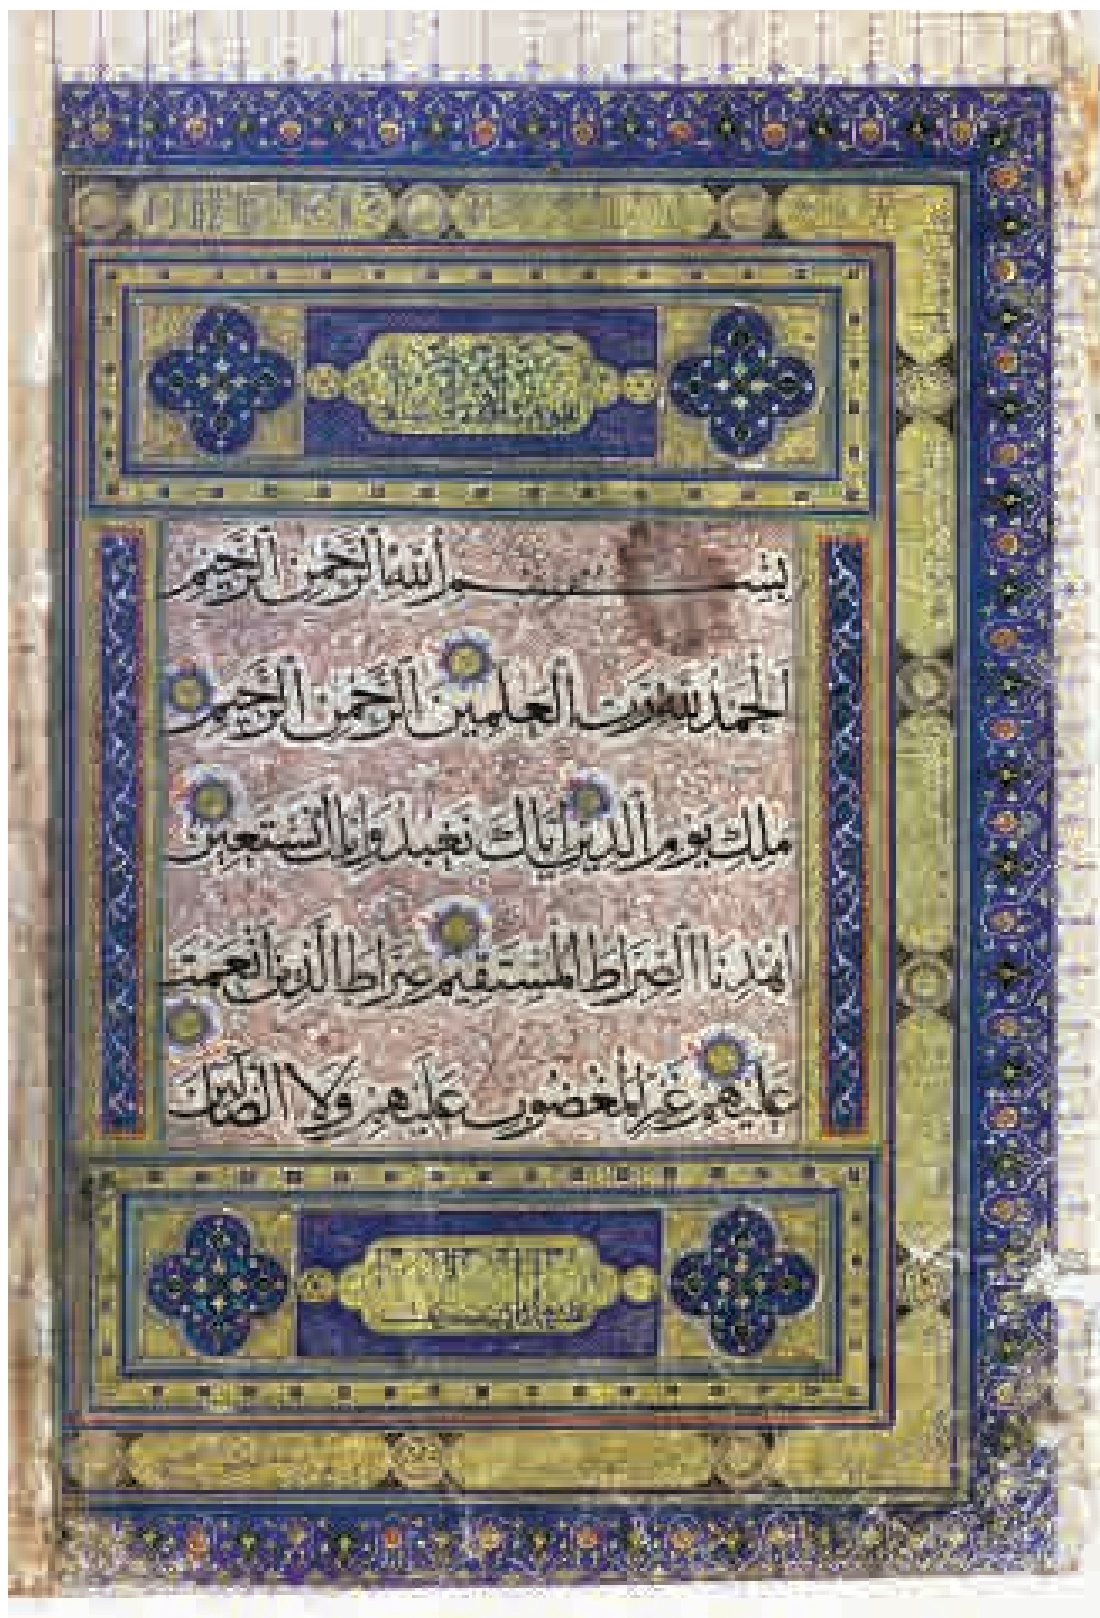 بِسْمِ ٱللَّهِ ٱلرَّحْمَٰنِ ٱلرَّحِيمِ
ٱلْحَمْدُ لِلَّهِ رَبِّ ٱلْعَٰلَمِينَ ٱلرَّحْمَٰنِ ٱلرَّحِيمِ
مَٰلِكِ يَوْمِ ٱلدِّينِ إِيَّاكَ نَعْبُدُ وَإِيَّاكَ نَسْتَعِينُ
ٱهْدِنَا ٱلصِّرَاطَ ٱلْمُسْتَقِيمَ صِرَاطَ ٱلَّذِينَ أَنْعَمْتَ
عَلَيْهِمْ غَيْرِ ٱلْمَغْضُوبِ عَلَيْهِمْ وَلَا ٱلضَّالِّينَ